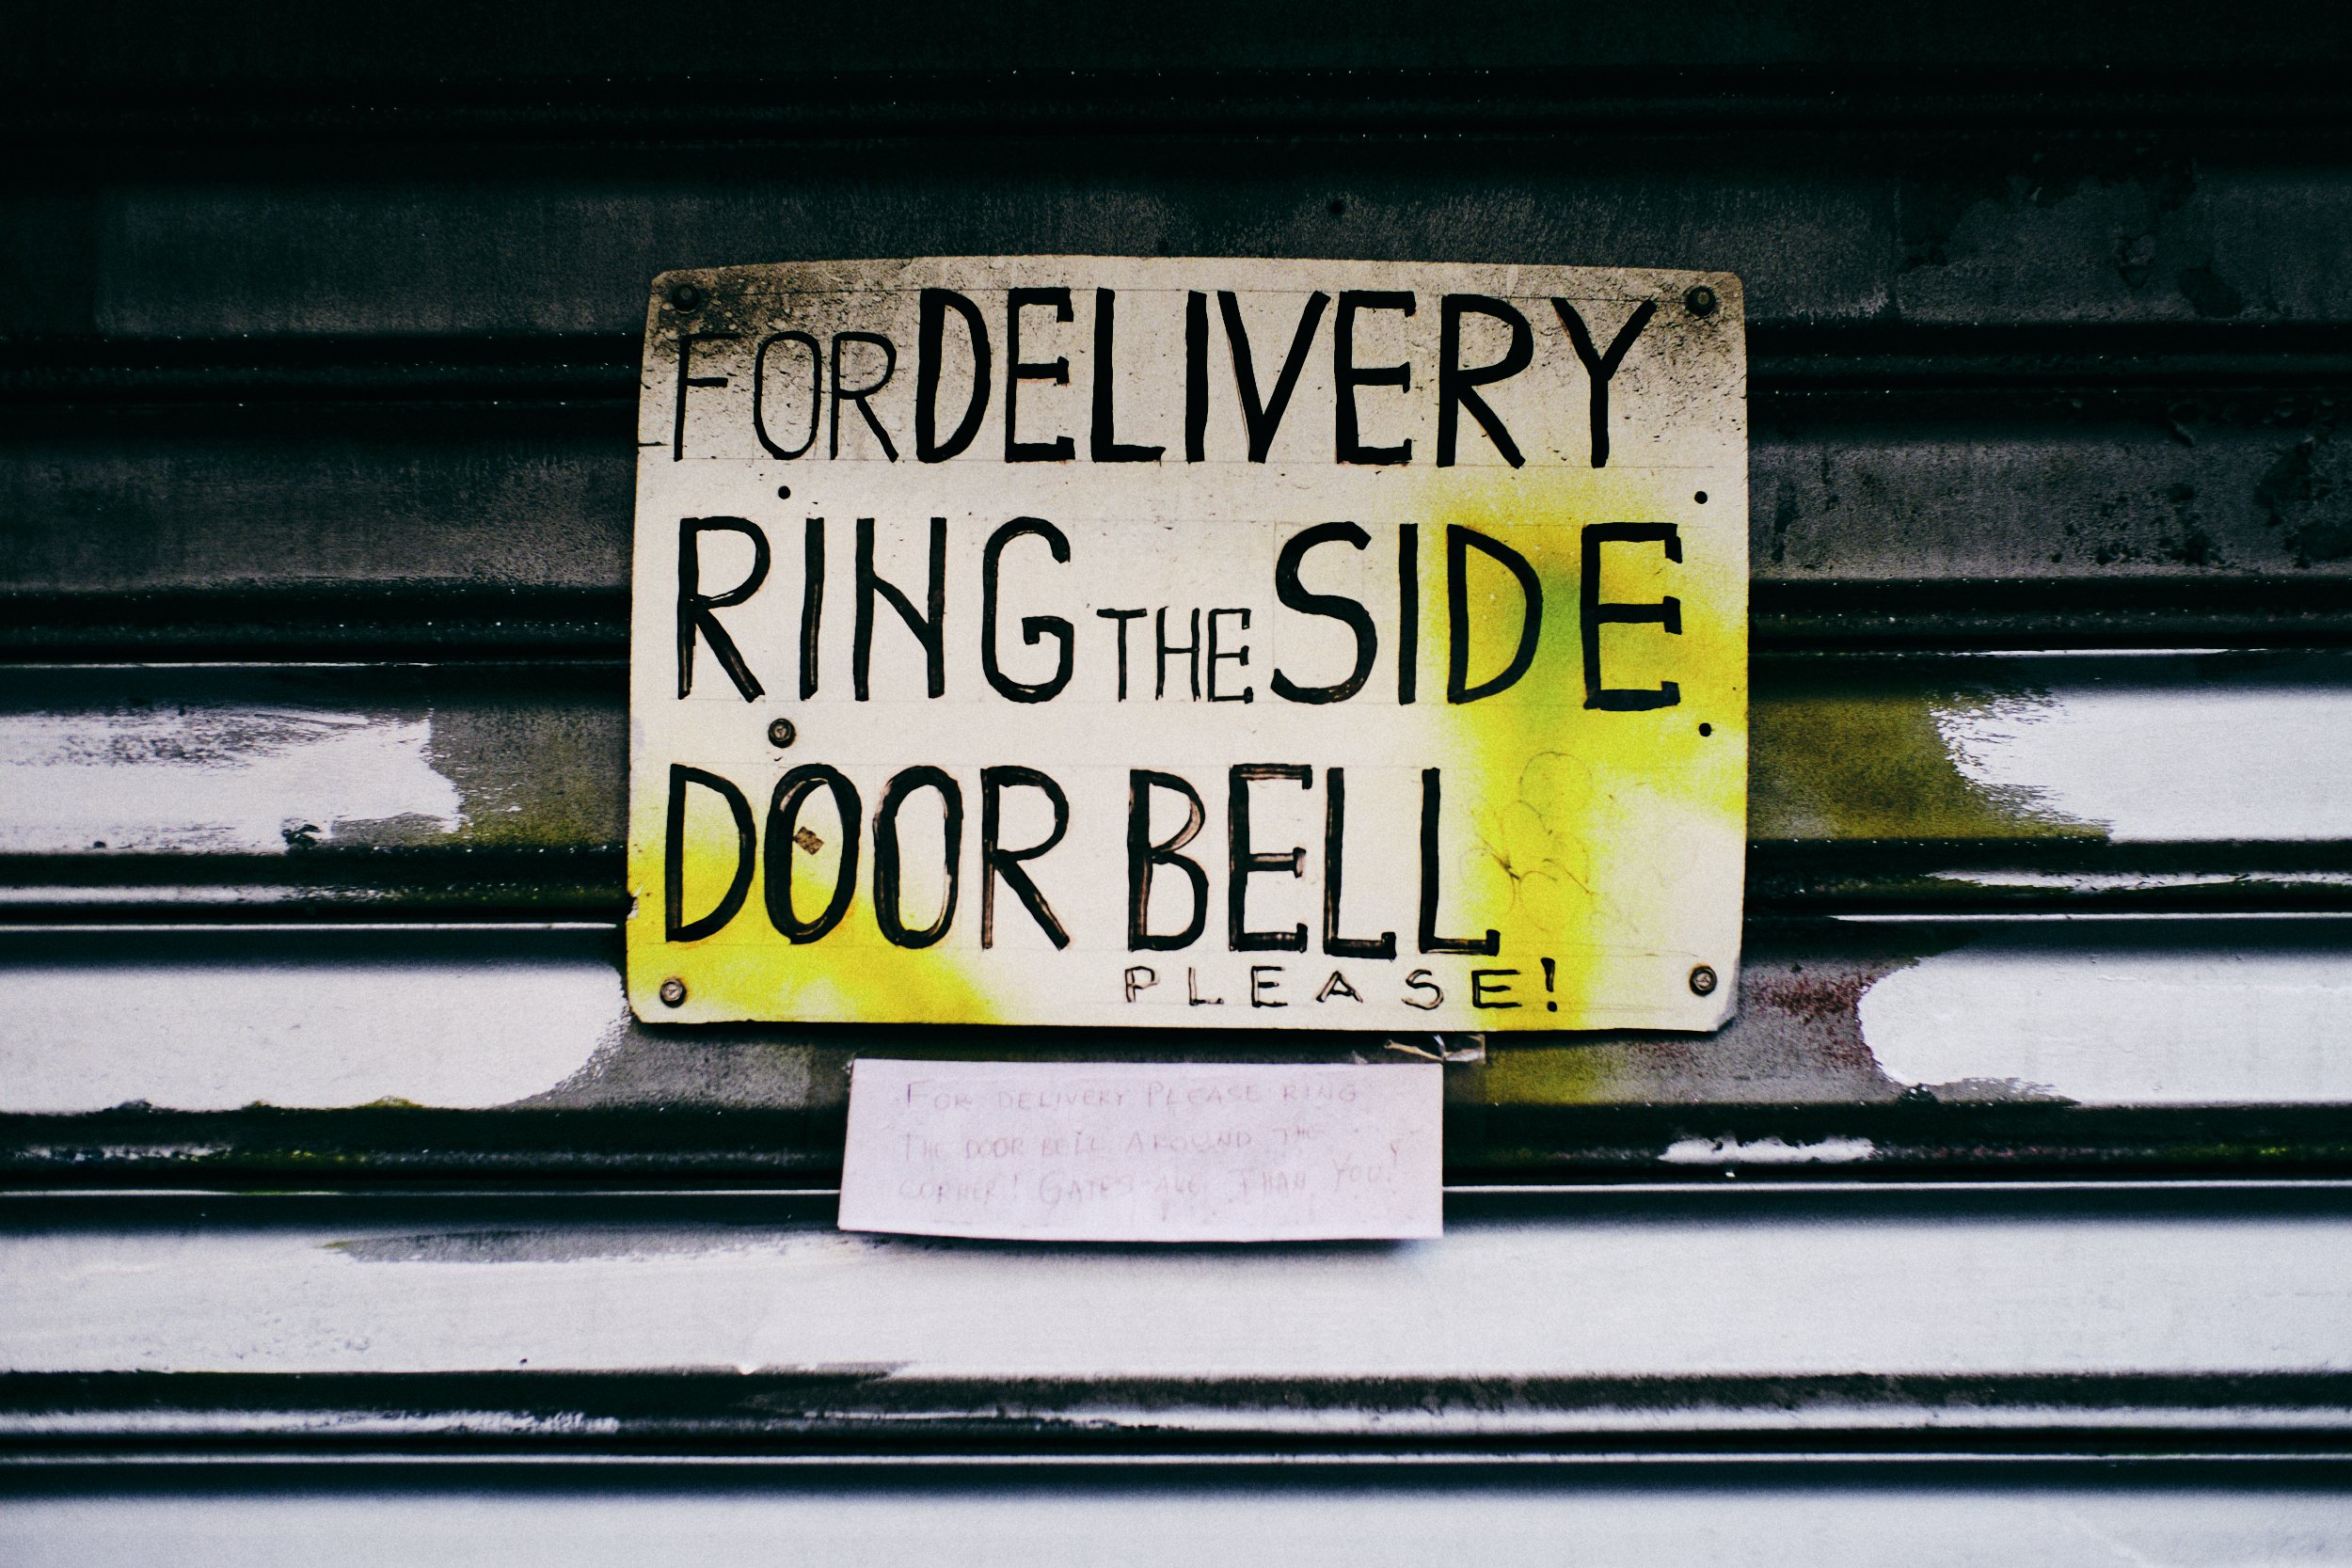 FOR DELIVERY
RING THE SIDE
DOOR BELL
PLEASE!
FOR DELIVERY PLEASE RING
THE DOOR BELL AROUND THE
CORNER! THAN YOU!